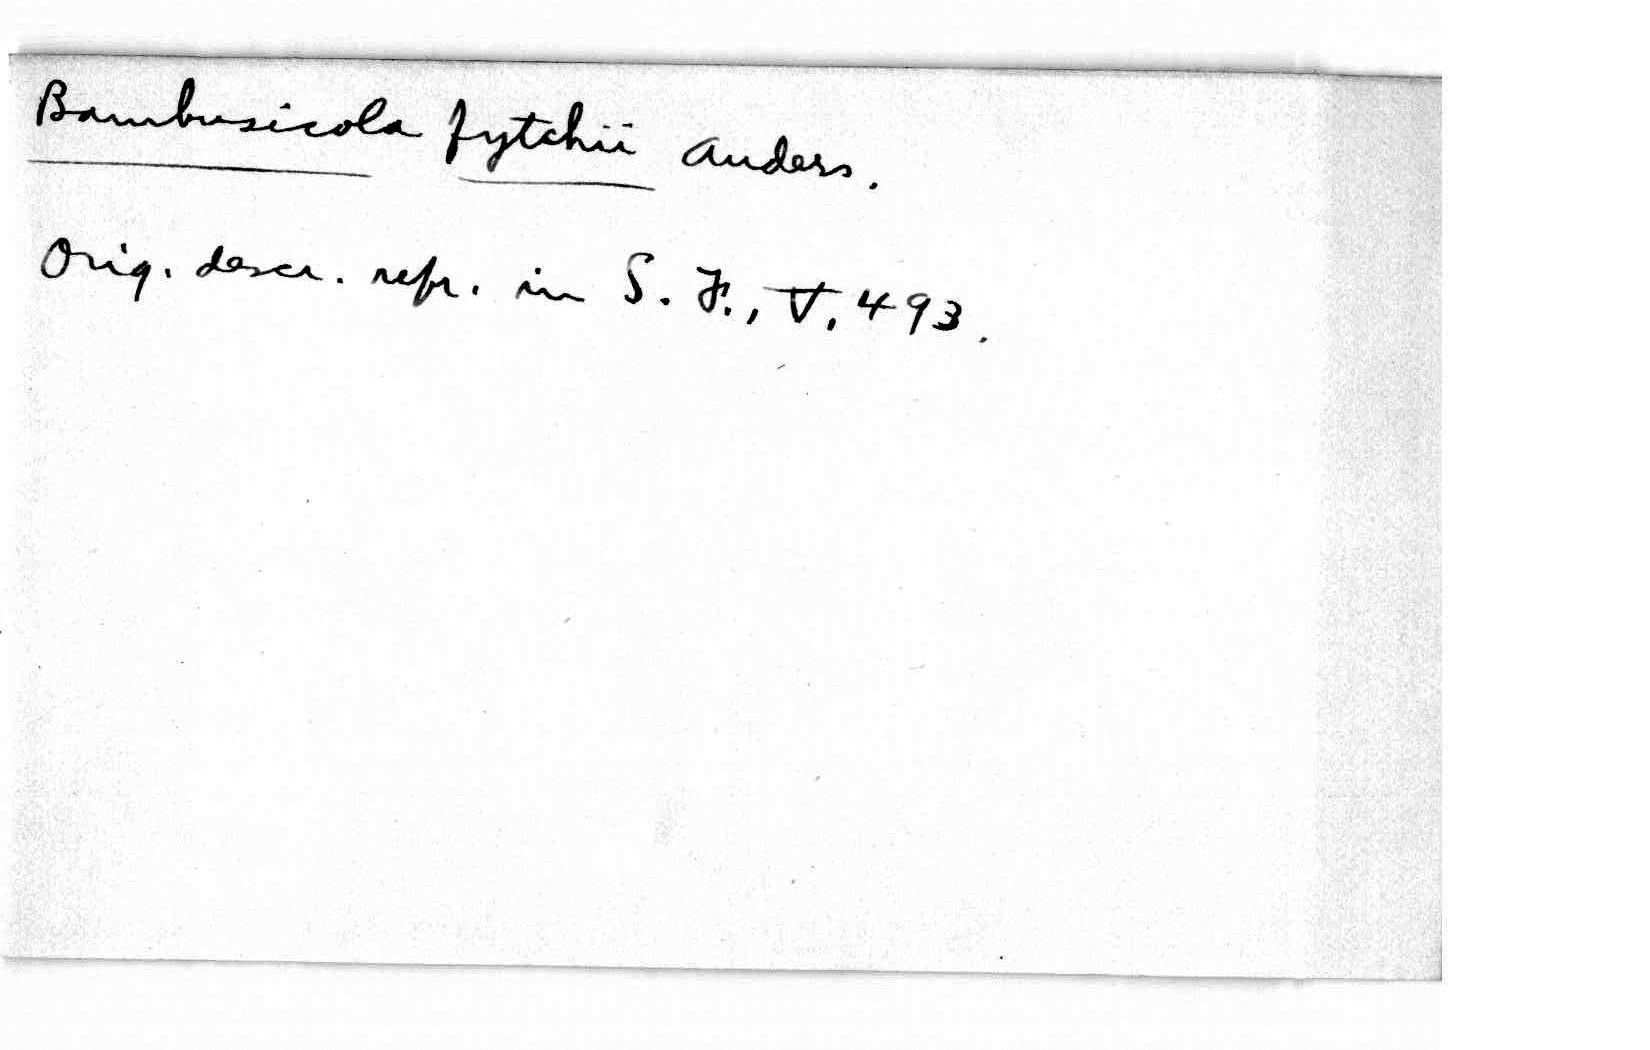 Bambusicola fytchii Anders.
Orig. descr. repr. in S. F., V. 493.